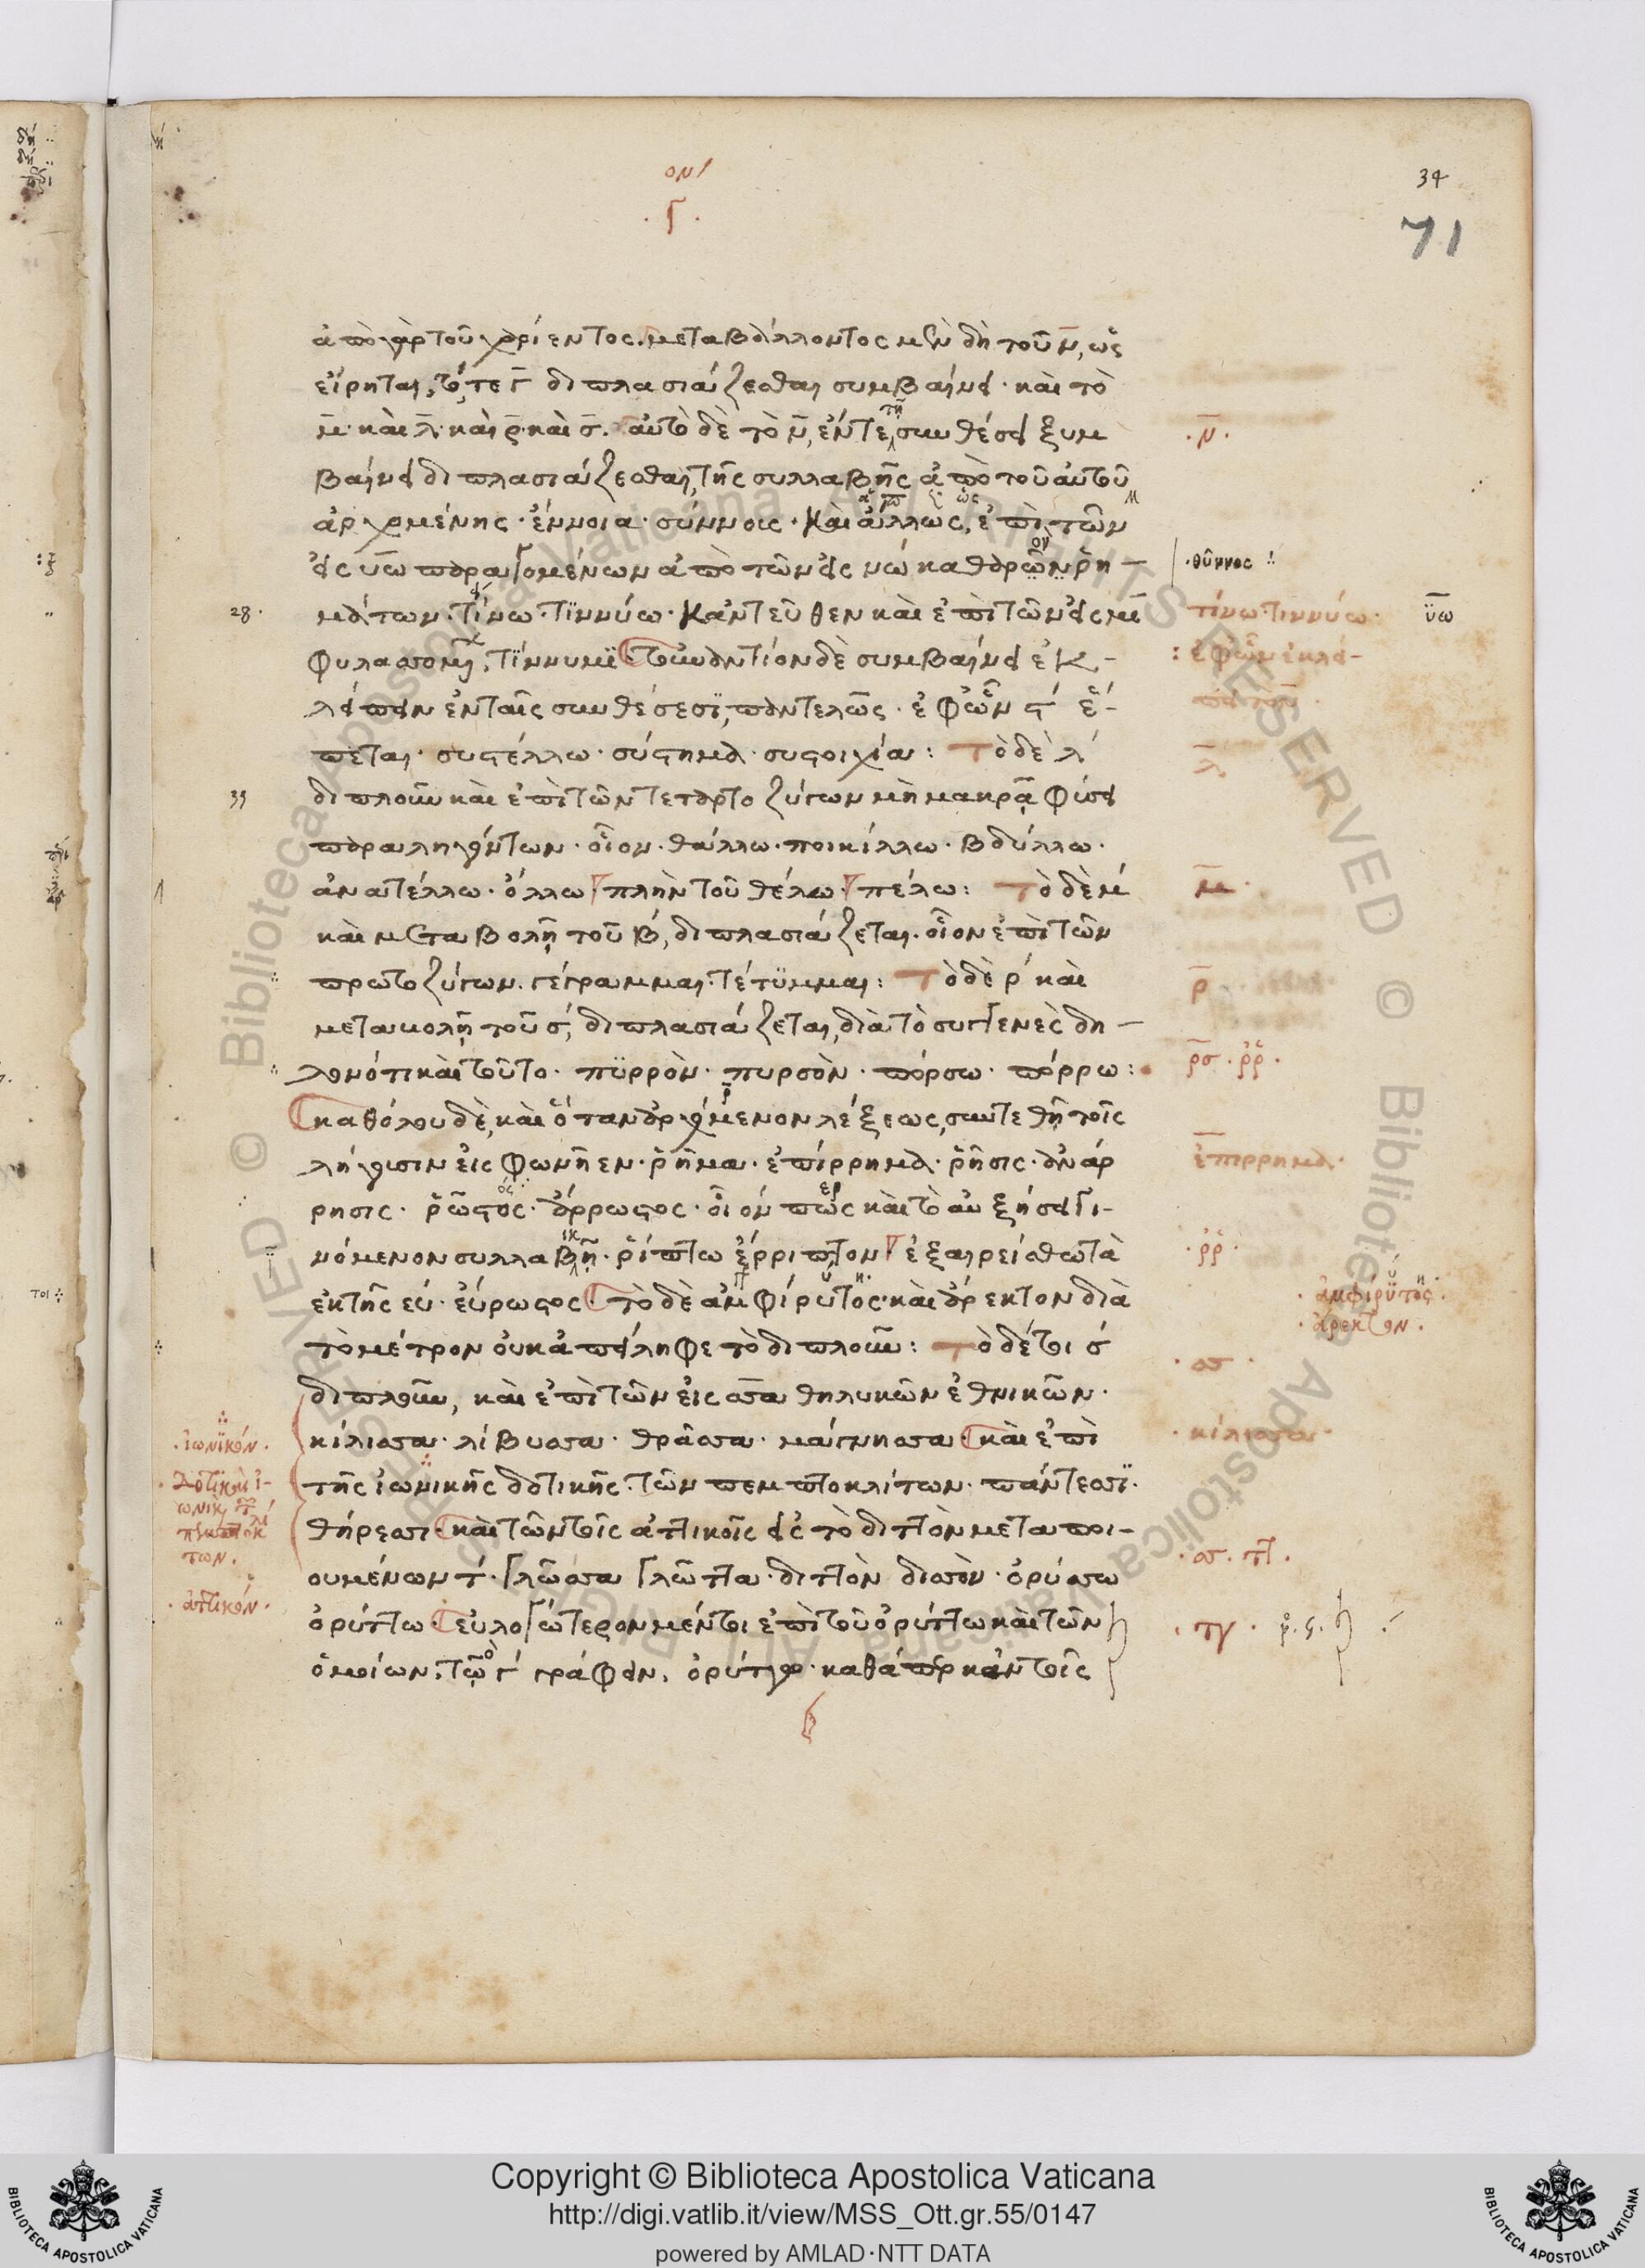 ονʹ
34
. Γ .
71
ἀπὸ γὰρ τοῦ χαρίεντος. μεταβάλλοντος μὲν δὴ τοῦ ν̄, ὡς
εἴρηται, τό, τε γ̄ διπλασιάζεσθαι συμβαίνει· καὶ τὸ
μ̄· καὶ λ̄· καὶ ρ̄· καὶ σ̄. αὐτὸ δὲ τὸ ν̄, ἔν τε τῇ συνθέσει ξυμ
βαίνει διπλασιάζεσθαι, τῆς συλλαβῆς ἀπὸ τοῦ αὐτοῦ
ἀρχομένης· ἔννοια· σύννοις· καὶ ἄλλως, ἐπὶ τῶν
εἰς ῡω παραγομένων ἀπὸ τῶν εἰς νω καθαρῶν ῥη-
μάτων· τίνω· τιννύω· κἀντεῦθεν καὶ ἐπὶ τῶν εἰς μι
τίννυμι τοὐναντίον δὲ συμβαίνει ἐκ-
λείπειν ἐν ταῖς συνθέσεσι, παντελῶς· ἐφ' ὧν ϛ ἕ-
πεται· συστέλλω· σύστημα· συστοιχία: Τὸ δὲ λ
διπλοῦν καὶ ἐπὶ τῶν τεταρτοζύγων μὴ μακρᾷ φύσει
παραληγόντων· οἷον· θάλλω· ποικίλλω· βδύλλω·
ἀνατέλλω· ὄλλω πλὴν τοῦ θέλω· πέλω: Τὸ δὲ μ
καὶ μεταβολῇ τοῦ β, διπλασιάζεται· οἷον ἐπὶ τῶν
πρωτοζύγων. γέγραμμαι· τέτϋμμαι: Τὸ δὲ ρ καὶ
μεταβολῇ τοῦ σ, διπλασιάζεται, διὰ τὸ συγγενὲς δη-
λονότι καὶ τοῦτο· πϋρρὸν· πυρσὸν· πόρσω· πόρρω:
καθόλου δὲ, καὶ ὅταν ἀρχόμενον λέξεως, συντεθῇ τοῖς
λήγουσιν εἰς φωνῆεν· ῥῆμα· ἐπίρρημα· ῥῆσις· ἀνάρ
ρησις· ῥῶστος· ἄρρωστος· οἷόν πως καὶ τὸ αὐξήσει γι-
νόμενον συλλαβικῇ· ῥίπτω ἔρριπτον ἐξαιρείσθω τὰ
ἐκ τῆς εὐ· εὔρωστος τὸ δὲ ἀμφίρυτος· καὶ ἄρεκτον διὰ
τὸ μέτρον οὐκ ἀπείληφε τὸ διπλοῦν: Τὸ δέ τοι σ
διπλοῦν, καὶ ἐπὶ τῶν εἰς σσα θηλυκῶν ἐθνικῶν·
κίλισσα· λίβυσσα· θρᾶσσα· μάγνησσα καὶ ἐπὶ
τῆς ἰωνικῆς δοτικῆς· τῶν πεμπτοκλίτων· πάντεσσϊ·
θήρεσσι· καὶ τῶν τοῖς ἀττικοῖς εἰς τὸ διττὸν μεταποι-
ουμένων τ· γλῶσσα γλῶττα· διττὸν δισσὸν· ὀρύσσω
ὀρύττω· εὐλογώτερον μέντοι ἐπὶ τοῦ ὀρύττω καὶ τῶν
ὁμοίων, τῷ γ γράφειν, ὀρύτγω· καθάπερ κἀν τοῖς
·ν̄·
·θῦννος :
τίνω· τιννύω·
ϋ̄ω
: ἐφ' ὧν ἐκλεί-
λ̄
μ̄·
ρ̄
ρ̄σ· ῤῥ·
ἐπίρρημα·
·ῤῥ·
· ἀμφίρϋτος·
· ἄρεκτον·
· σσ ·
· κίλισσα·
· σσ. ττ.
· τγ ·
28·
33
· ἰωνϊκόν·
· δοτικὴ ἰ-
ωνικὴ
πεμπτοκλί
των.
· ἀττικόν·
Copyright © Biblioteca Apostolica Vaticana
http://digi.vatlib.it/view/MSS_Ott.gr.55/0147
powered by AMLAD·NTT DATA